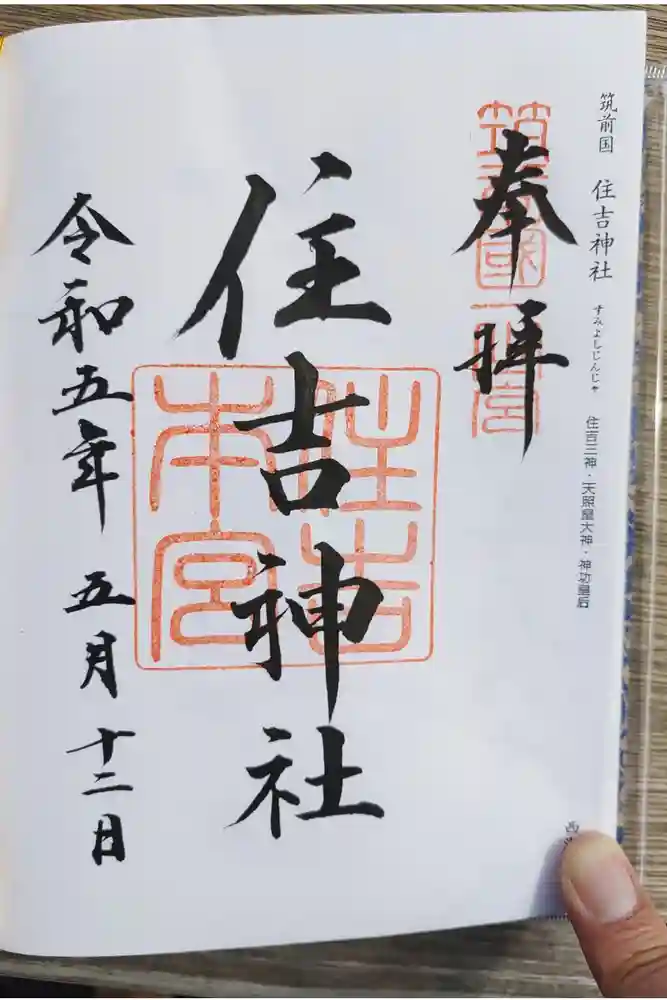 筑前国 住吉神社 すみよしじんじゃ 住吉三神・天照皇大神・神功皇后
西
奉拝
筑前國一宮
住吉神社
住吉本宮
令和五年 五月 十二日